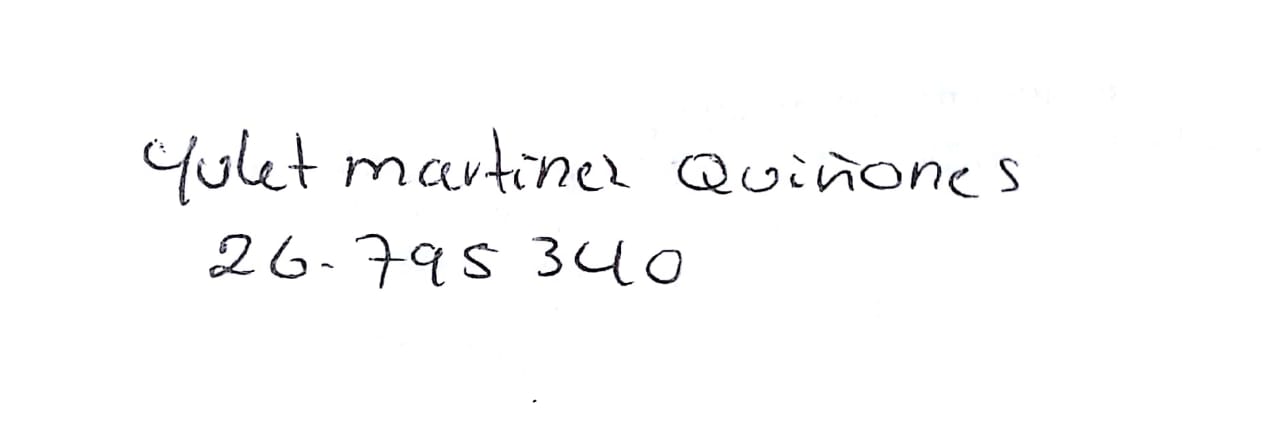 Yulet martinez Quiñones
26.795 340